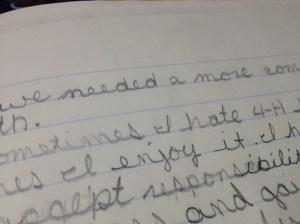 we needed a more com
th.
ometimes I hate 4-H
mes I enjoy it. I h
accept responsibilit
s and gai